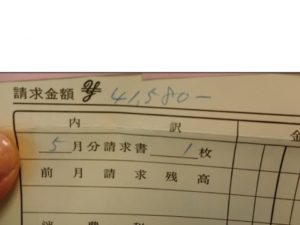 請求金額 ¥ 41,580-
内 訳 金
5月分請求書 1枚
前月請求残高
消費税